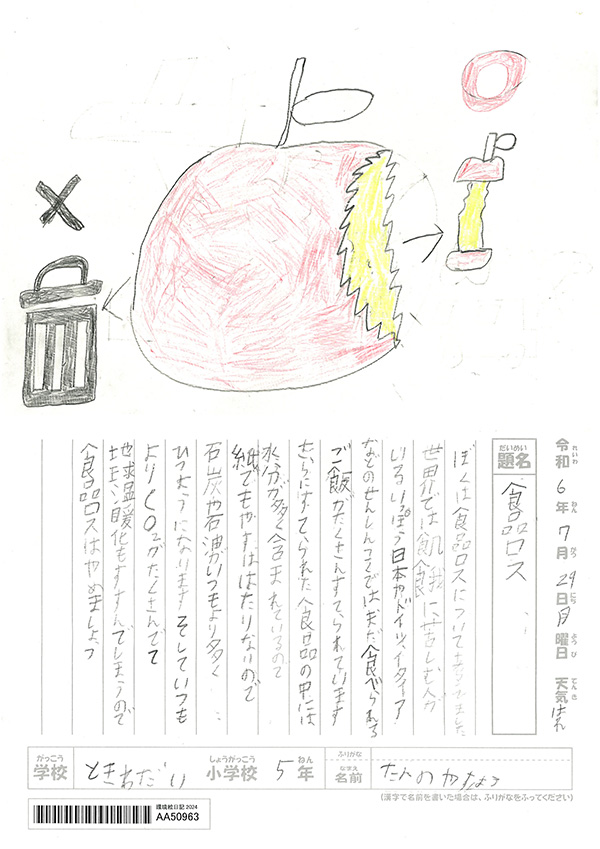 令和 6年 7月 29日 月曜日 天気 はれ
れいわ ねん がつ にち よう び てん き
だいめい
題名
食品ロス
ぼくは食品ロスについて
世界では飢餓に苦しむ人が
いるいっぽう日本やドイツ、イタリア
などのせんしんこくではまだ食べられる
ご飯がたくさんすてられています
さらにすてられた食品の中には
水分が多く含まれているので
紙でもやすははたりないので
石炭や石油がいつもより多く
ひつようになりますそしていつも
よりCO2がたくさんでて
地球温暖化もすすんでしまうので
食品ロスはやめましょう
がっこう しょうがっこう ねん ふりがな
学校 ときわだい 小学校 5年 なまえ 名前
(漢字で名前を書いた場合は、ふりがなをふってください)
環境絵日記 2024
AA50963